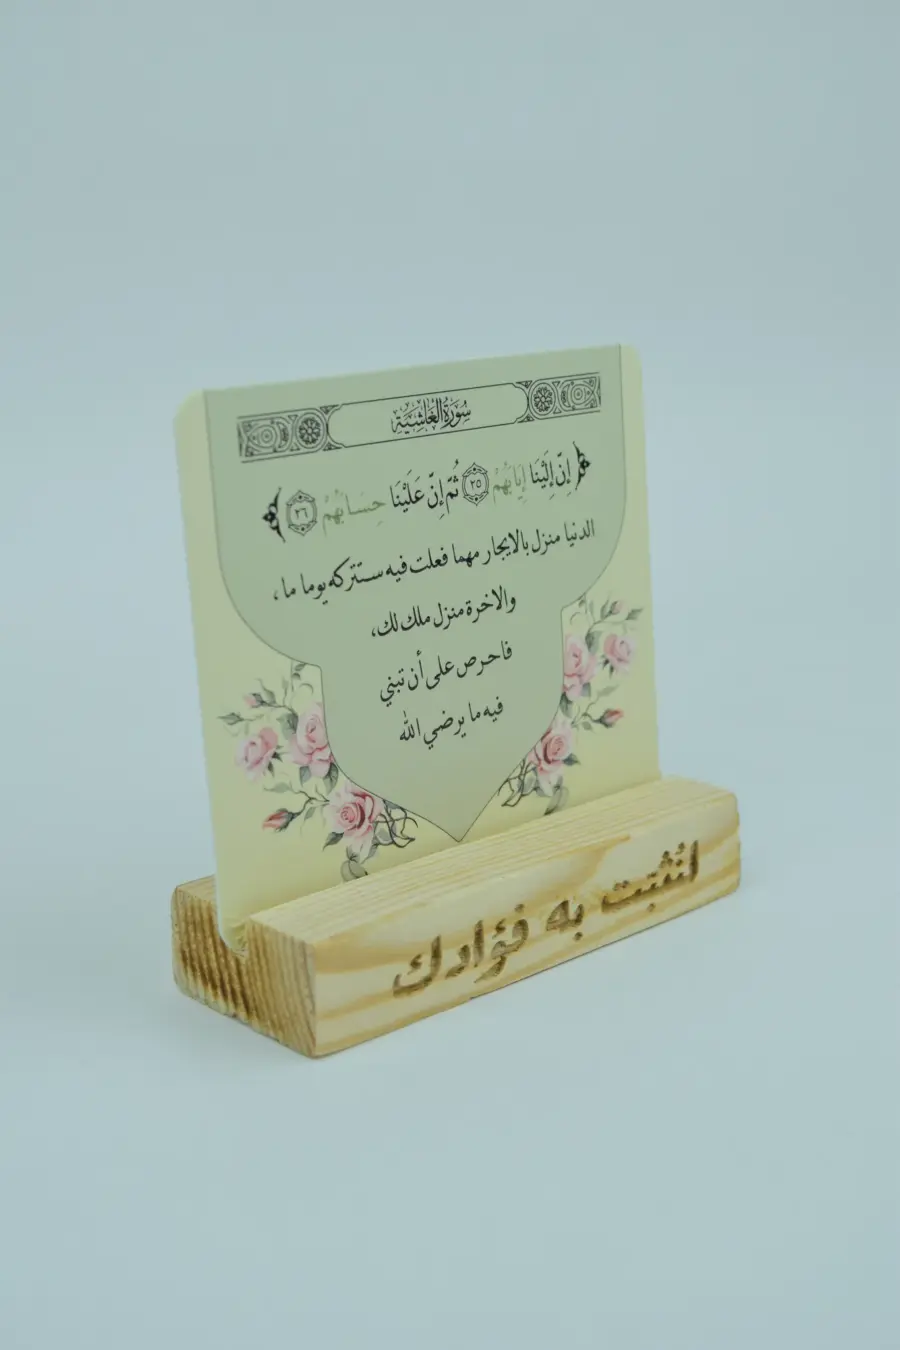 سُورَةُ الْغَاشِيَة
﴿إِنَّ إِلَيْنَا إِيَابَهُمْ ٢٥ ثُمَّ إِنَّ عَلَيْنَا حِسَابَهُمْ ٢٦﴾
الدنيا منزل بالايجار مهما فعلت فيه ستتركه يوما ما ،
والاخرة منزل ملك لك،
فاحرص على أن تبني
فيه ما يرضي الله
لنُثبت به فؤادك